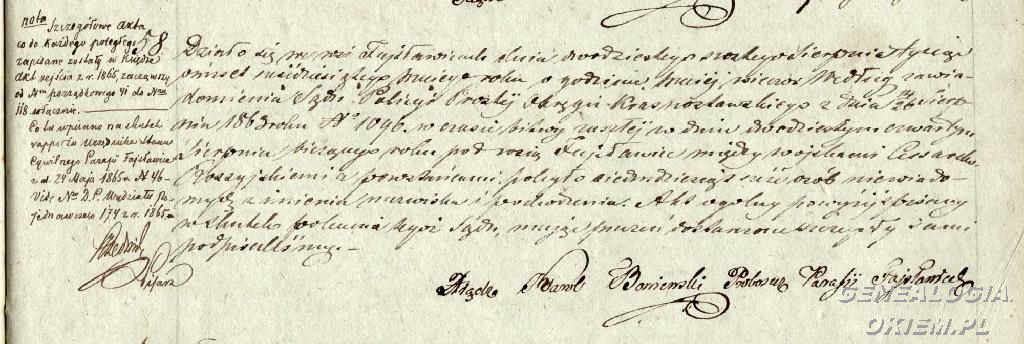 nota Szczegółowe Akta
co do każdego poległego
zapisane zostały w Księdze
Akt zejścia z r. 1865, zacząwszy
od Nru porządkowego 41 do Nru
118 włącznie.
Co tu wpisano na skutek
rapportu Urzędnika Stanu
Cywilnego Parafji Fajsławice
z d. 24 Maja 1865 r. N 46
Vide Nr D. P. Wydziału
174 z r. 1865
Pisarz
58
Działo się we wsi Fajsławicach dnia dwudziestego szóstego Sierpnia tysiąc
ośmset sześćdziesiątego trzeciego roku o godzinie trzeciej wieczór. Według zawia-
domienia Sądu Policyi Prostej Okręgu Krasnostawskiego z dnia 14/26 Sierp-
nia 1863 roku No 1096. w czasie bitwy zaszłej w dniu dwudziestym czwartym
Sierpnia bieżącego roku pod wsią Fajsławice między wojskami Cesarsko
Rossyjskiemi a powstańcami, poległo siedmdziesiąt osób niewiado-
mych z imienia nazwiska i pochodzenia. Akt ogólny powyżej spisany
w skutek polecenia tegoż Sądu, przezemnie sami
podpisaliśmy.
Xiądz Karol Boniewski Proboszcz Parafij Fajsławice
GENEALOGIA
OKIEM.PL